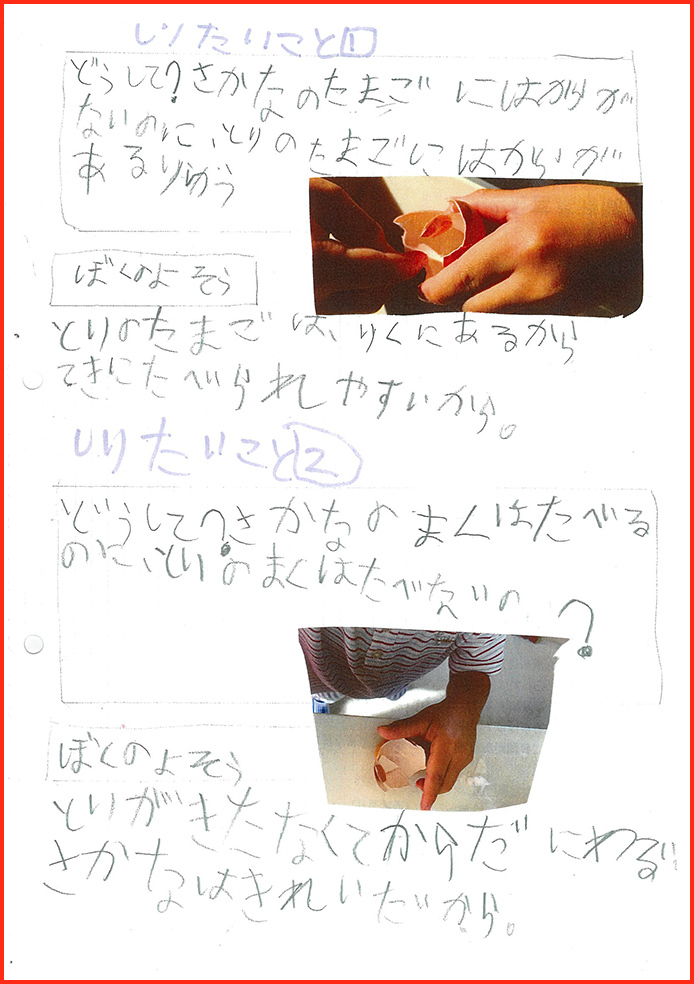 しりたいこと1
どうして?さかなのたまごにはからが
ないのに、とりのたまごにはからが
あるりゆう
ぼくのよそう
とりのたまごは、りくにあるから
てきにたべられやすいから。
しりたいこと2
どうして?さかなのまくはたべる
のに、とりのまくはたべないの?
ぼくのよそう
とりがきたなくてからだにわるい
さかなはきれいだから。